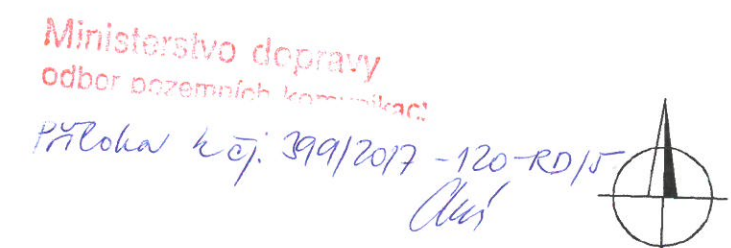 Ministerstvo dopravy
odbor pozemních komunikací
Příloha k čj. 399/2017-120-RD/5